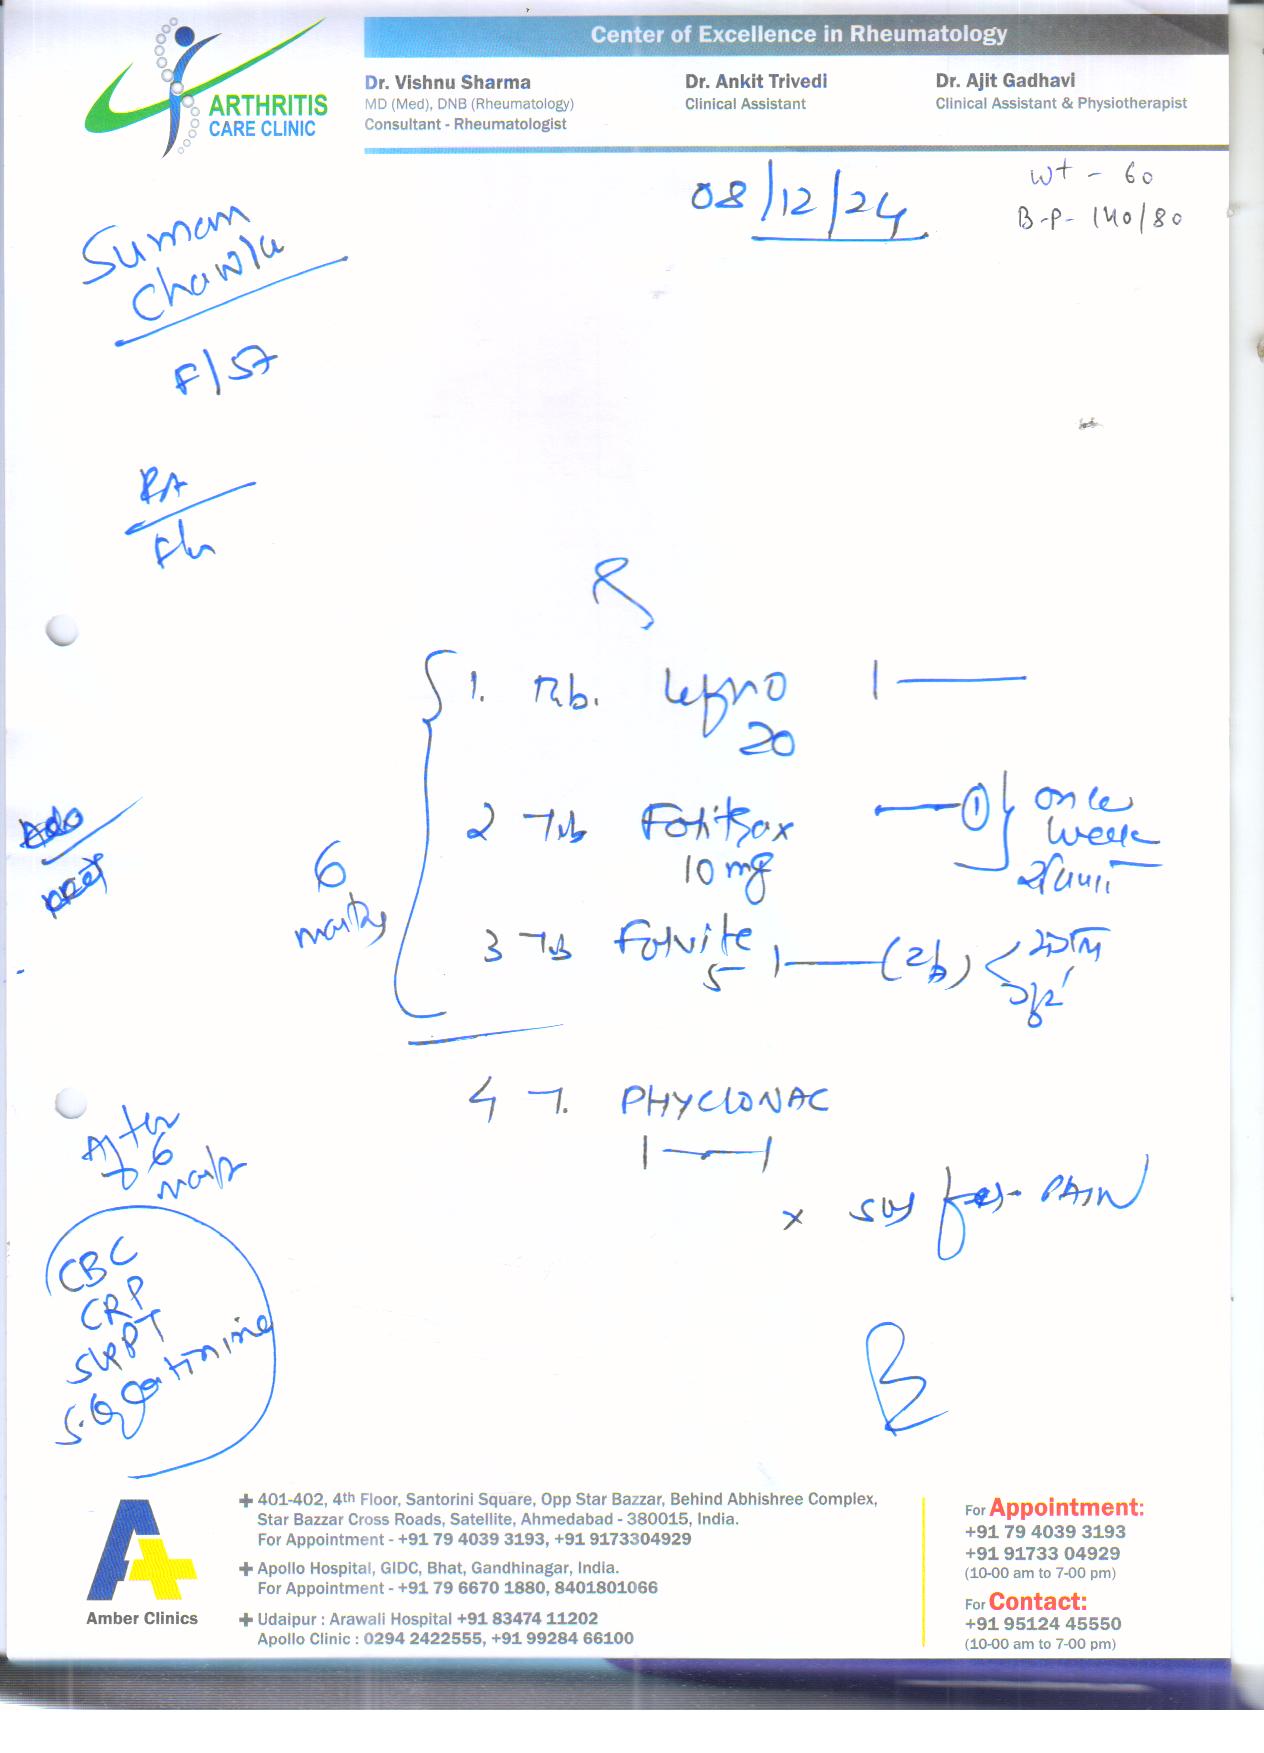 ARTHRITIS
CARE CLINIC
Center of Excellence in Rheumatology
Dr. Vishnu Sharma
MD (Med), DNB (Rheumatology)
Consultant - Rheumatologist
Dr. Ankit Trivedi
Clinical Assistant
Dr. Ajit Gadhavi
Clinical Assistant & Physiotherapist
08/12/24
Wt - 60
B.P- 140/80
Suman
Chawla
F/57
RA
1. Tab. Lefno 1
20
2 Tab Folitrax 1 once
10 mg week
6
3 Tab Folvite 1
5
4 T. PHYCLONAC
1 1
x SOS for PAIN
After
6
CBC
CRP
SGPT
S. Creatinine
Amber Clinics
401-402, 4th Floor, Santorini Square, Opp Star Bazzar, Behind Abhishree Complex,
Star Bazzar Cross Roads, Satellite, Ahmedabad - 380015, India.
For Appointment - +91 79 4039 3193, +91 9173304929
Apollo Hospital, GIDC, Bhat, Gandhinagar, India.
For Appointment - +91 79 6670 1880, 8401801066
Udaipur : Arawali Hospital +91 83474 11202
Apollo Clinic : 0294 2422555, +91 99284 66100
For Appointment:
+91 79 4039 3193
+91 91733 04929
(10-00 am to 7-00 pm)
For Contact:
+91 95124 45550
(10-00 am to 7-00 pm)